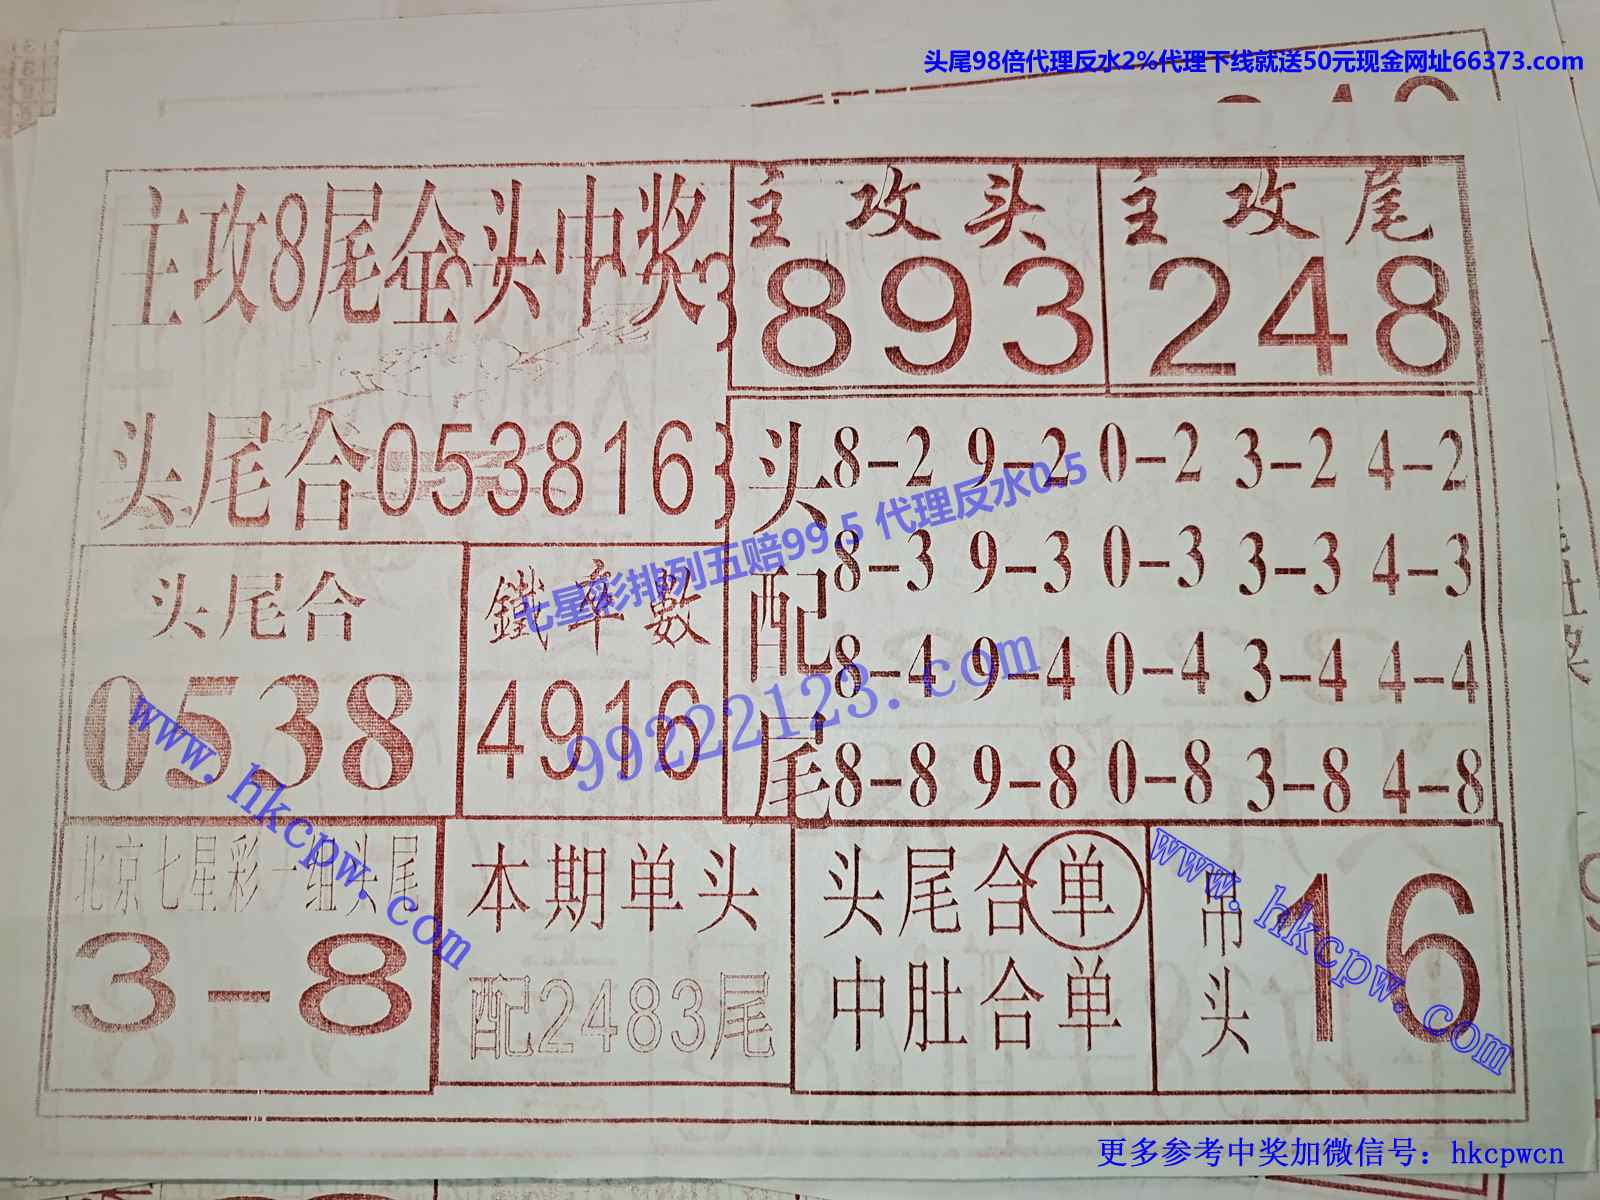 头尾98倍代理反水2%代理下线就送50元现金网址66373.com
主攻8尾全头中奖
主攻头
893
主攻尾
248
头尾合053816
头配尾
8-2 9-2 0-2 3-2 4-2
8-3 9-3 0-3 3-3 4-3
8-4 9-4 0-4 3-4 4-4
8-8 9-8 0-8 3-8 4-8
七星彩排列五赔99.5 代理反水0.5
99222123.com
头尾合
0538
鐵率數
4916
www.hkcpw.com
北京七星彩一组头尾
3-8
本期单头
配2483尾
头尾合单
中肚合单
吊头
16
www.hkcpw.com
更多参考中奖加微信号：hkcpwcn